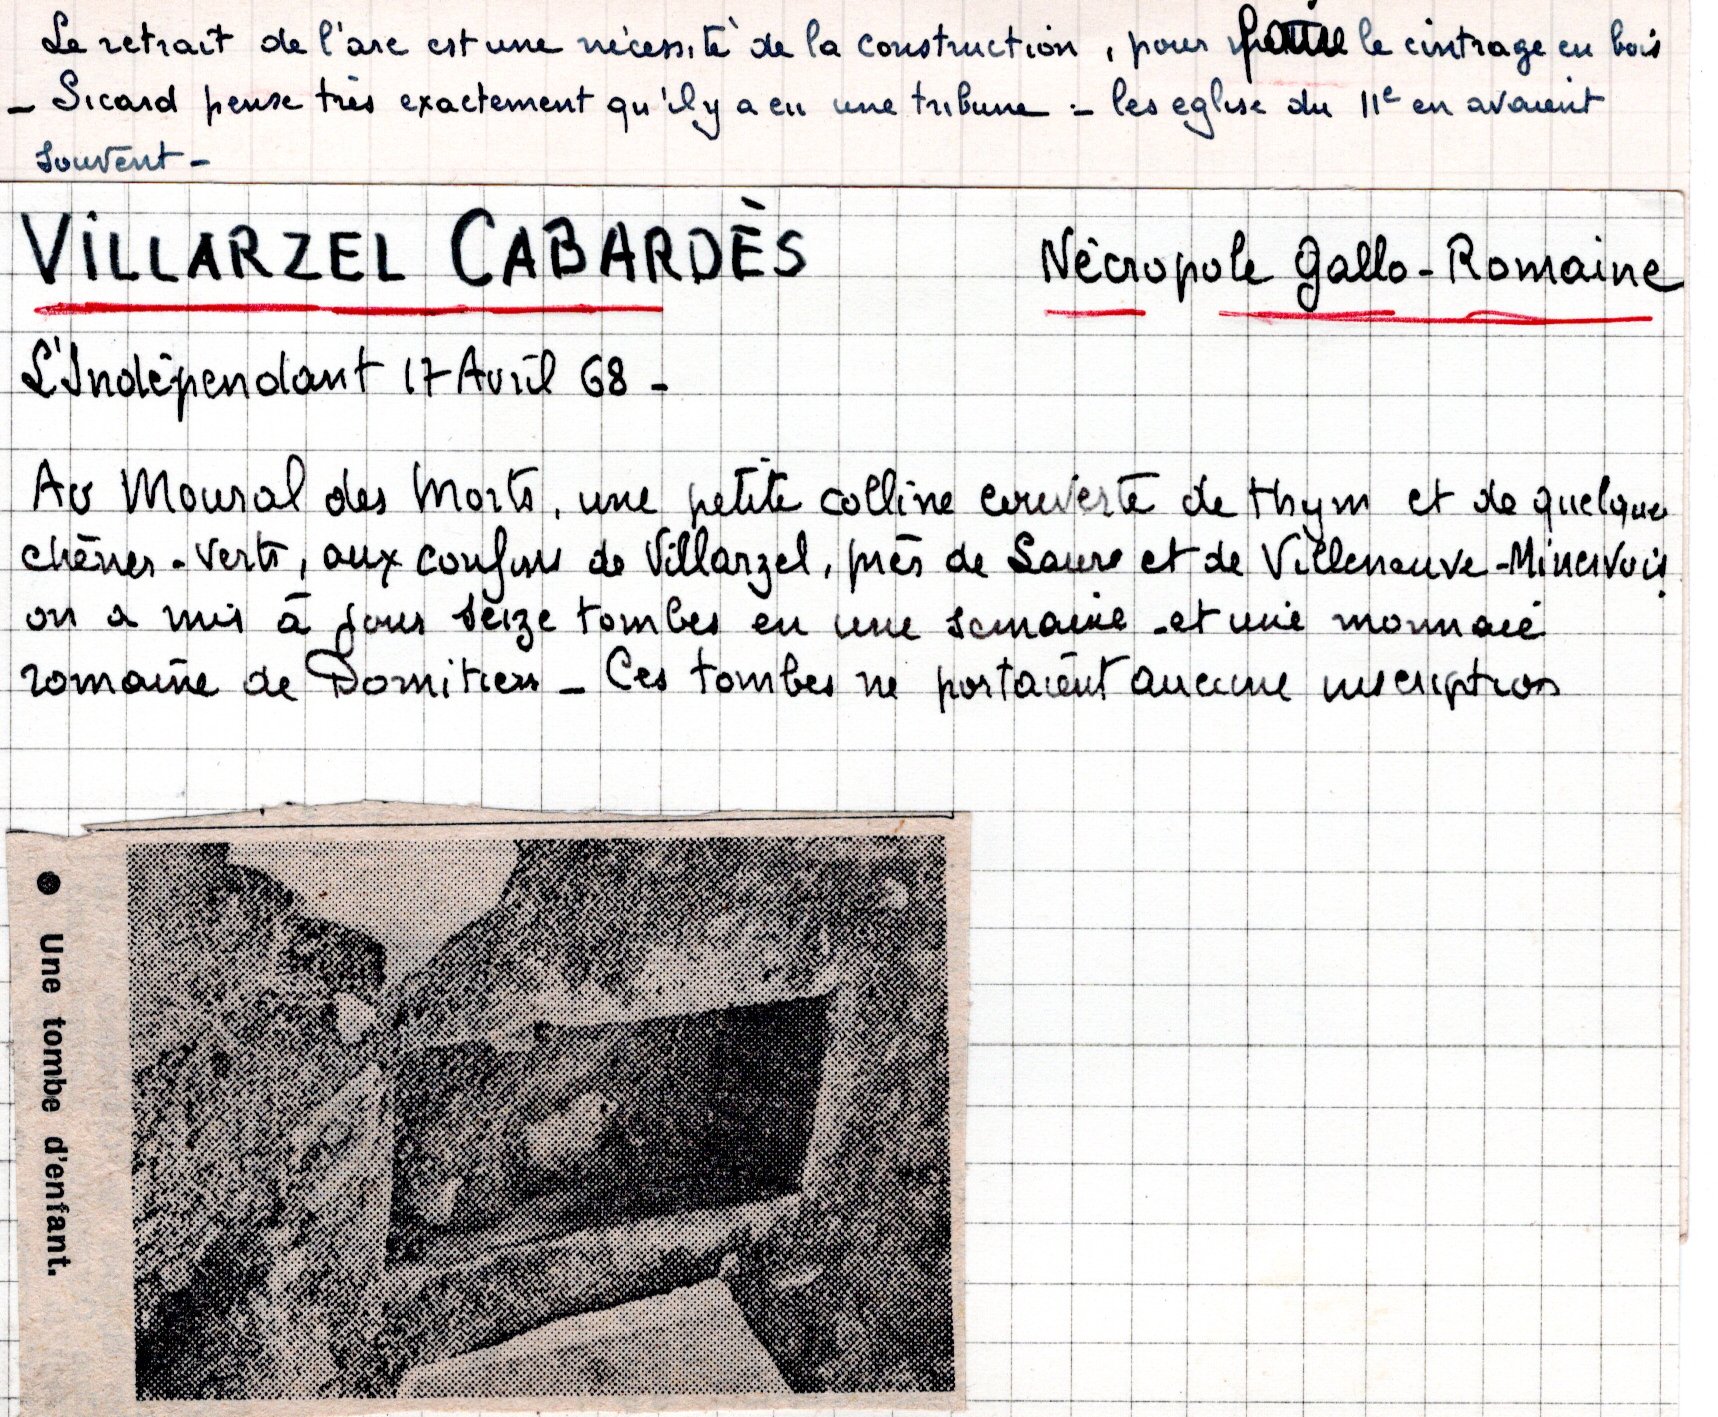 Le retrait de l'arc est une nécessité de la construction, pour le cintrage en bois
- Sicard pense très exactement qu'il y a eu une tribune - les eglise du 11e en avaient
souvent -
VILLARZEL CABARDÈS
Nécropole Gallo-Romaine
L'Indépendant 17 Avril 68 -
Au Moural des Morts, une petite colline couverte de thym et de quelques
chênes-verts, aux confins de Villarzel, près de Laure et de Villeneuve-Minervois
on a mis à jour seize tombes en une semaine et une monnaie
romaine de Domitien - Ces tombes ne portaient aucune inscription
● Une tombe d'enfant.